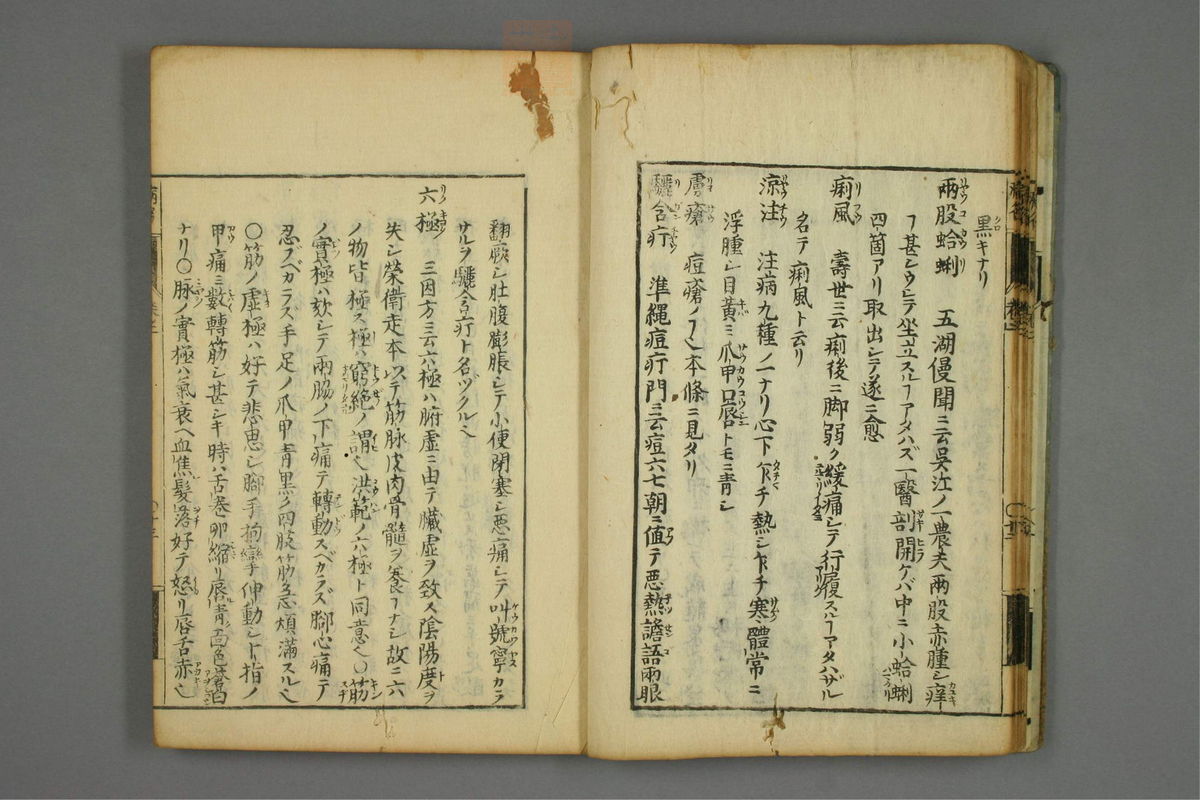 黒キナリ
兩股蛤蜊 五湖優聞ニ云呉江ノ一農夫兩股赤腫シ痒
ヿ甚シウシテ坐立スルヿアタハズ一醫剖開ケバ中ニ小蛤蜊
四箇アリ取出シテ遂ニ愈
痢風 壽世ニ云痢後ニ脚弱ク緩痛シテ行履スルヿアタハザル
名テ痢風ト云リ
涼注 注病九種ノ一ナリ心下乍チ熱シ乍チ寒シ體常ニ
浮腫シ目黄ミ爪甲口唇トモニ青シ
膚瘡 痘瘡ノヿ本條ニ見タリ
驪含疔 準繩痘疔門ニ云痘六七朝ニ値テ悪熱譫語兩眼
翻厥シ肚腹膨脹シテ小便閉塞シ悪痛シテ叫號寧カラ
サルヲ驪含疔ト名ヅクル也
六極 三因方ニ云六極ハ腑虚ニ由テ臓虚ヲ致ス陰陽度ヲ
失シ榮衛走本以テ筋脉皮肉骨髓ヲ養フナシ故ニ六
ノ物皆極ス極ハ窮絶ノ謂也洪範ノ六極ト同意也〇筋
ノ實極ハ欬シテ兩脇ノ下痛テ轉動スベカラズ脚心痛テ
忍ブベカラズ手足ノ爪甲青黒ク四肢筋急煩滿スル也
〇筋ノ虚極ハ好テ悲思シ脚手拘攣シ伸動シト指ノ
甲痛ミ數轉筋シ甚シキ時ハ舌巻卵縮リ唇青ク面色蒼白
ナリ〇脉ノ實極ハ氣衰ヘ血焦髮落好テ怒リ唇舌赤也